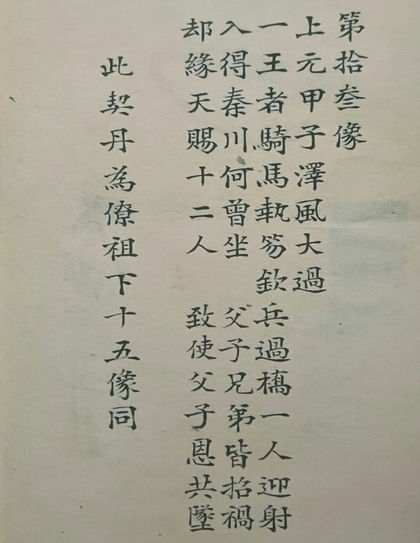 第拾叁像
上元甲子澤風大過
一王者騎馬執笏欽兵過橋一人迎射
入得秦川何曾坐 父子兄弟皆招禍
却緣天賜十二人 致使父子恩共墜
此契丹為僚祖下十五像同